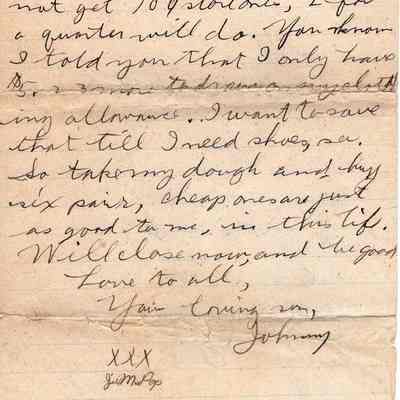 not get 10¢ stores, 2 for
a quarter will do. You know
I told you that I only have
$5. 23 more to draw on my cloth
ing allowance. I want to save
that till I need shoes, sa.
So take my dough and buy
six pair, cheap ones are just
as good to me, in this life.
Will close now, and be good
Love to all,
Your loving son,
Johnny
XXX